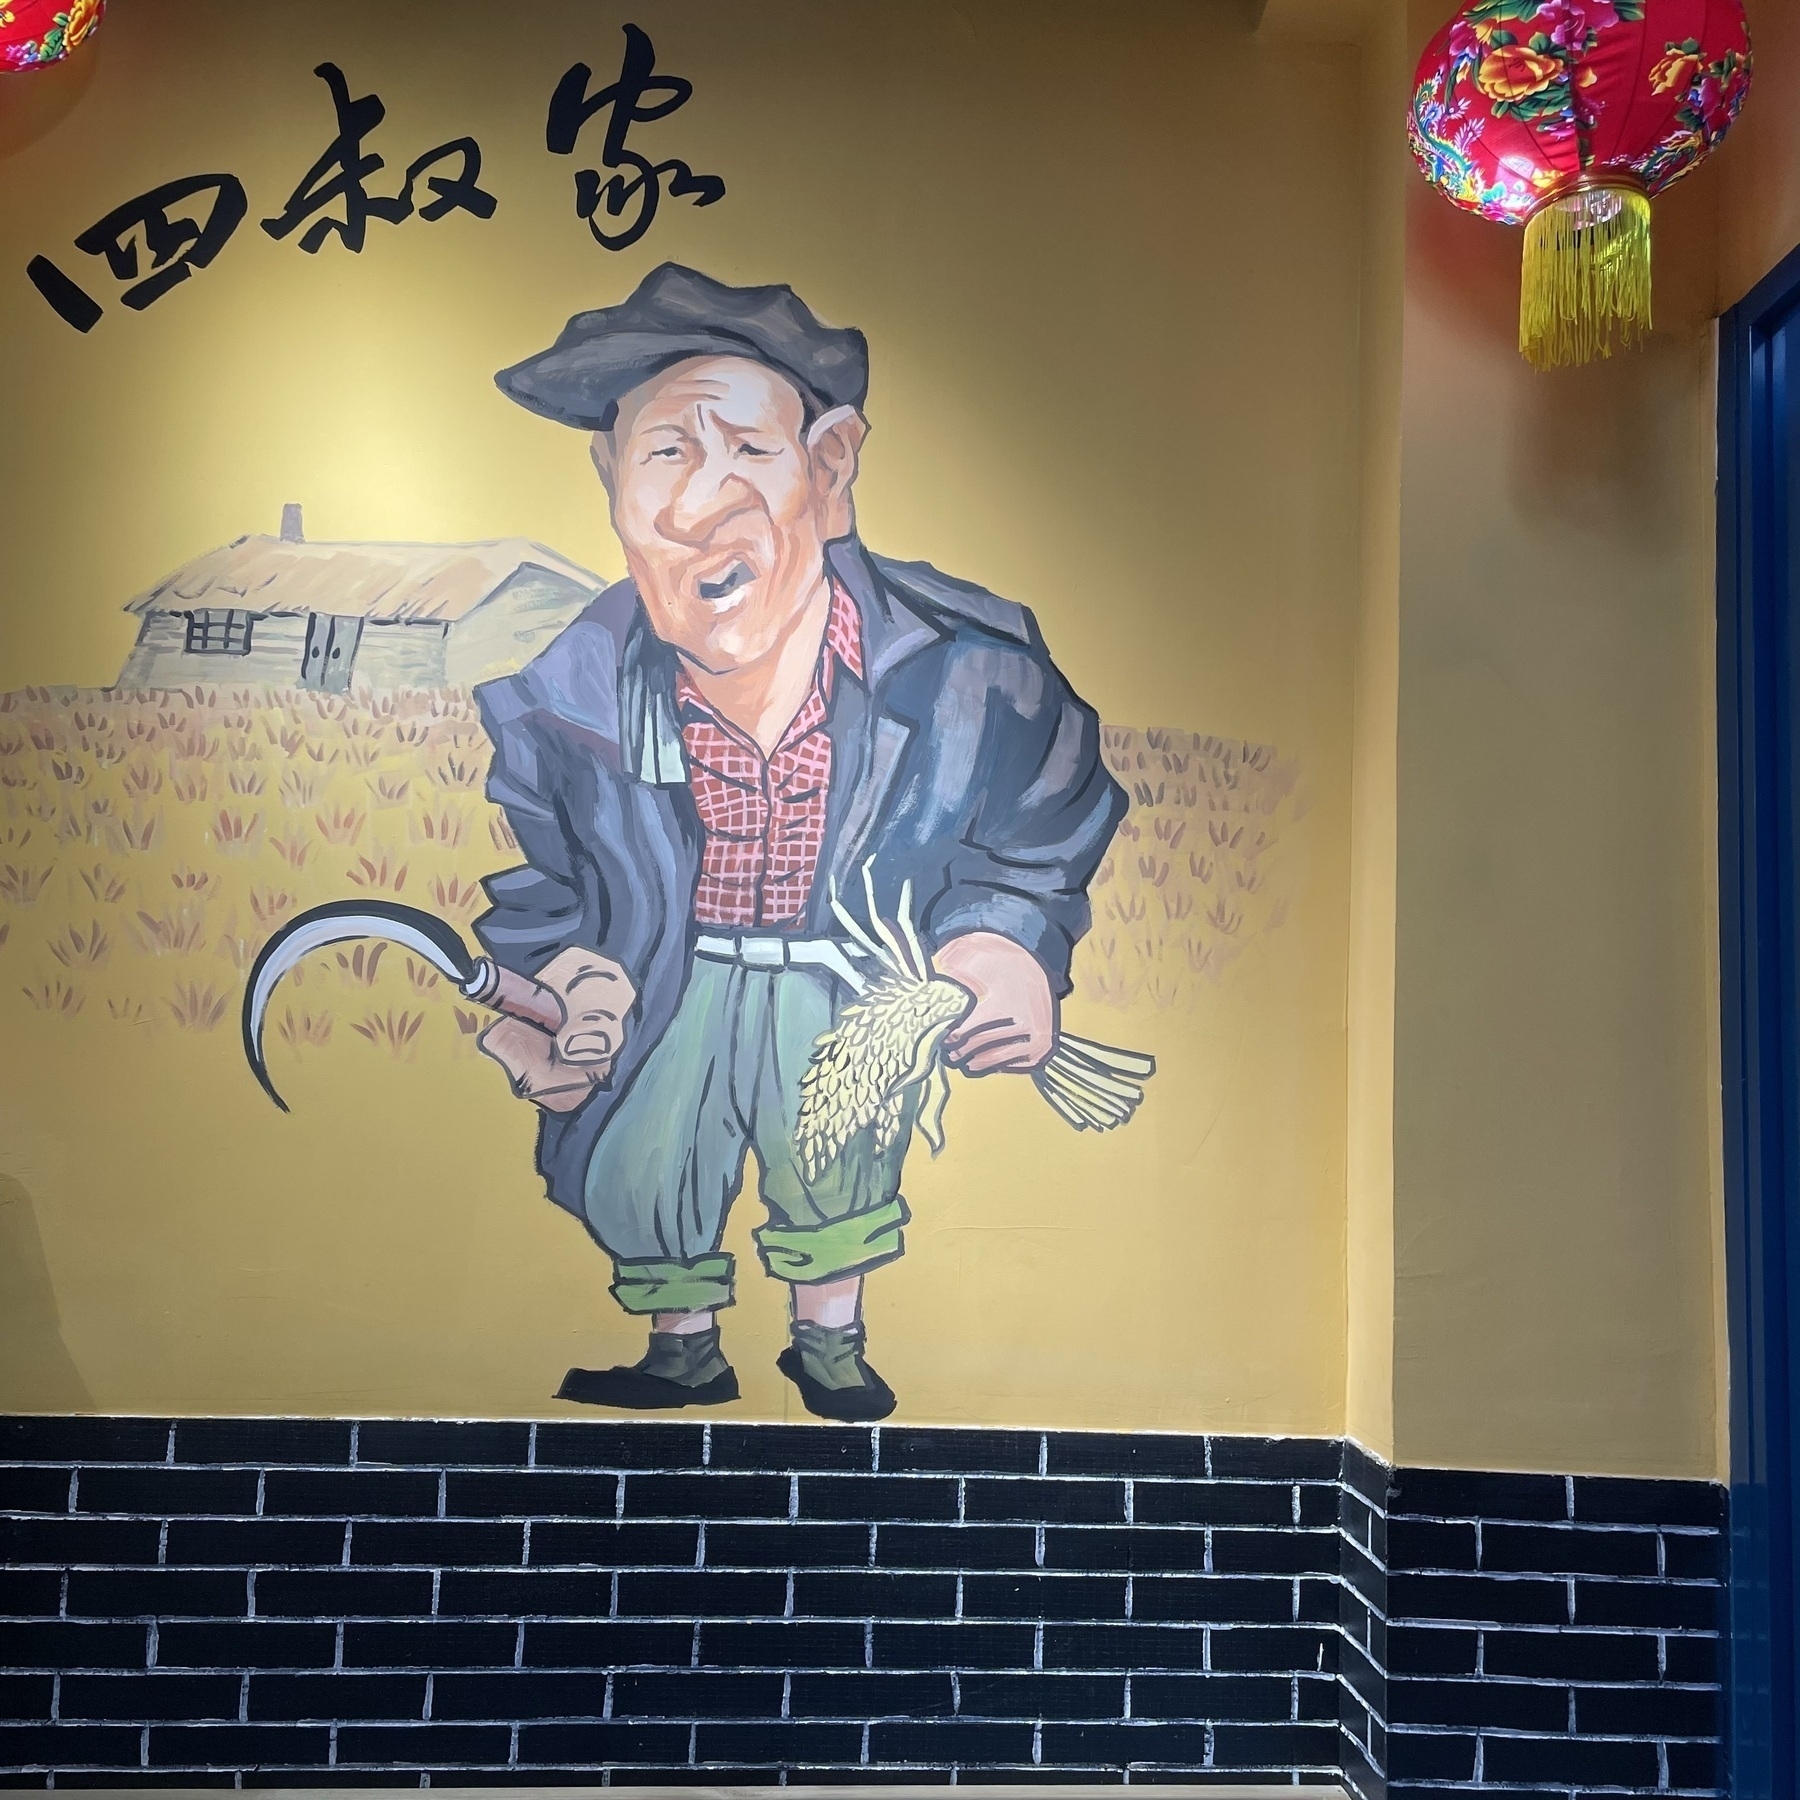 四叔家